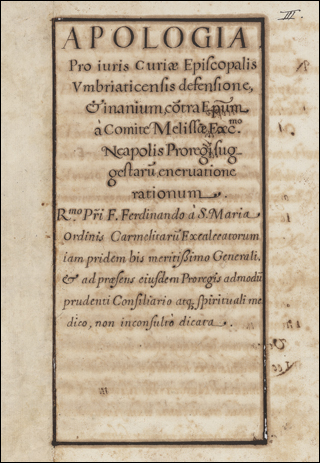 III.
APOLOGIA
Pro iuris Curiæ Episcopalis
Vmbriaticensis defensione,
& inanium, cõtra Epũm
à Comite Melissæ, Exc.mo
Neapolis Proregi, sug
gestarũ eneruatione
rationum.
R.mo Pri F. Ferdinando à S. Maria
Ordinis Carmelitarũ Excalceatorum
iam pridem bis meritissimo Generali,
& ad præsens eiusdem Proregis admodũ
prudenti Consiliario atq, spirituali me
dico, non inconsultò dicata.